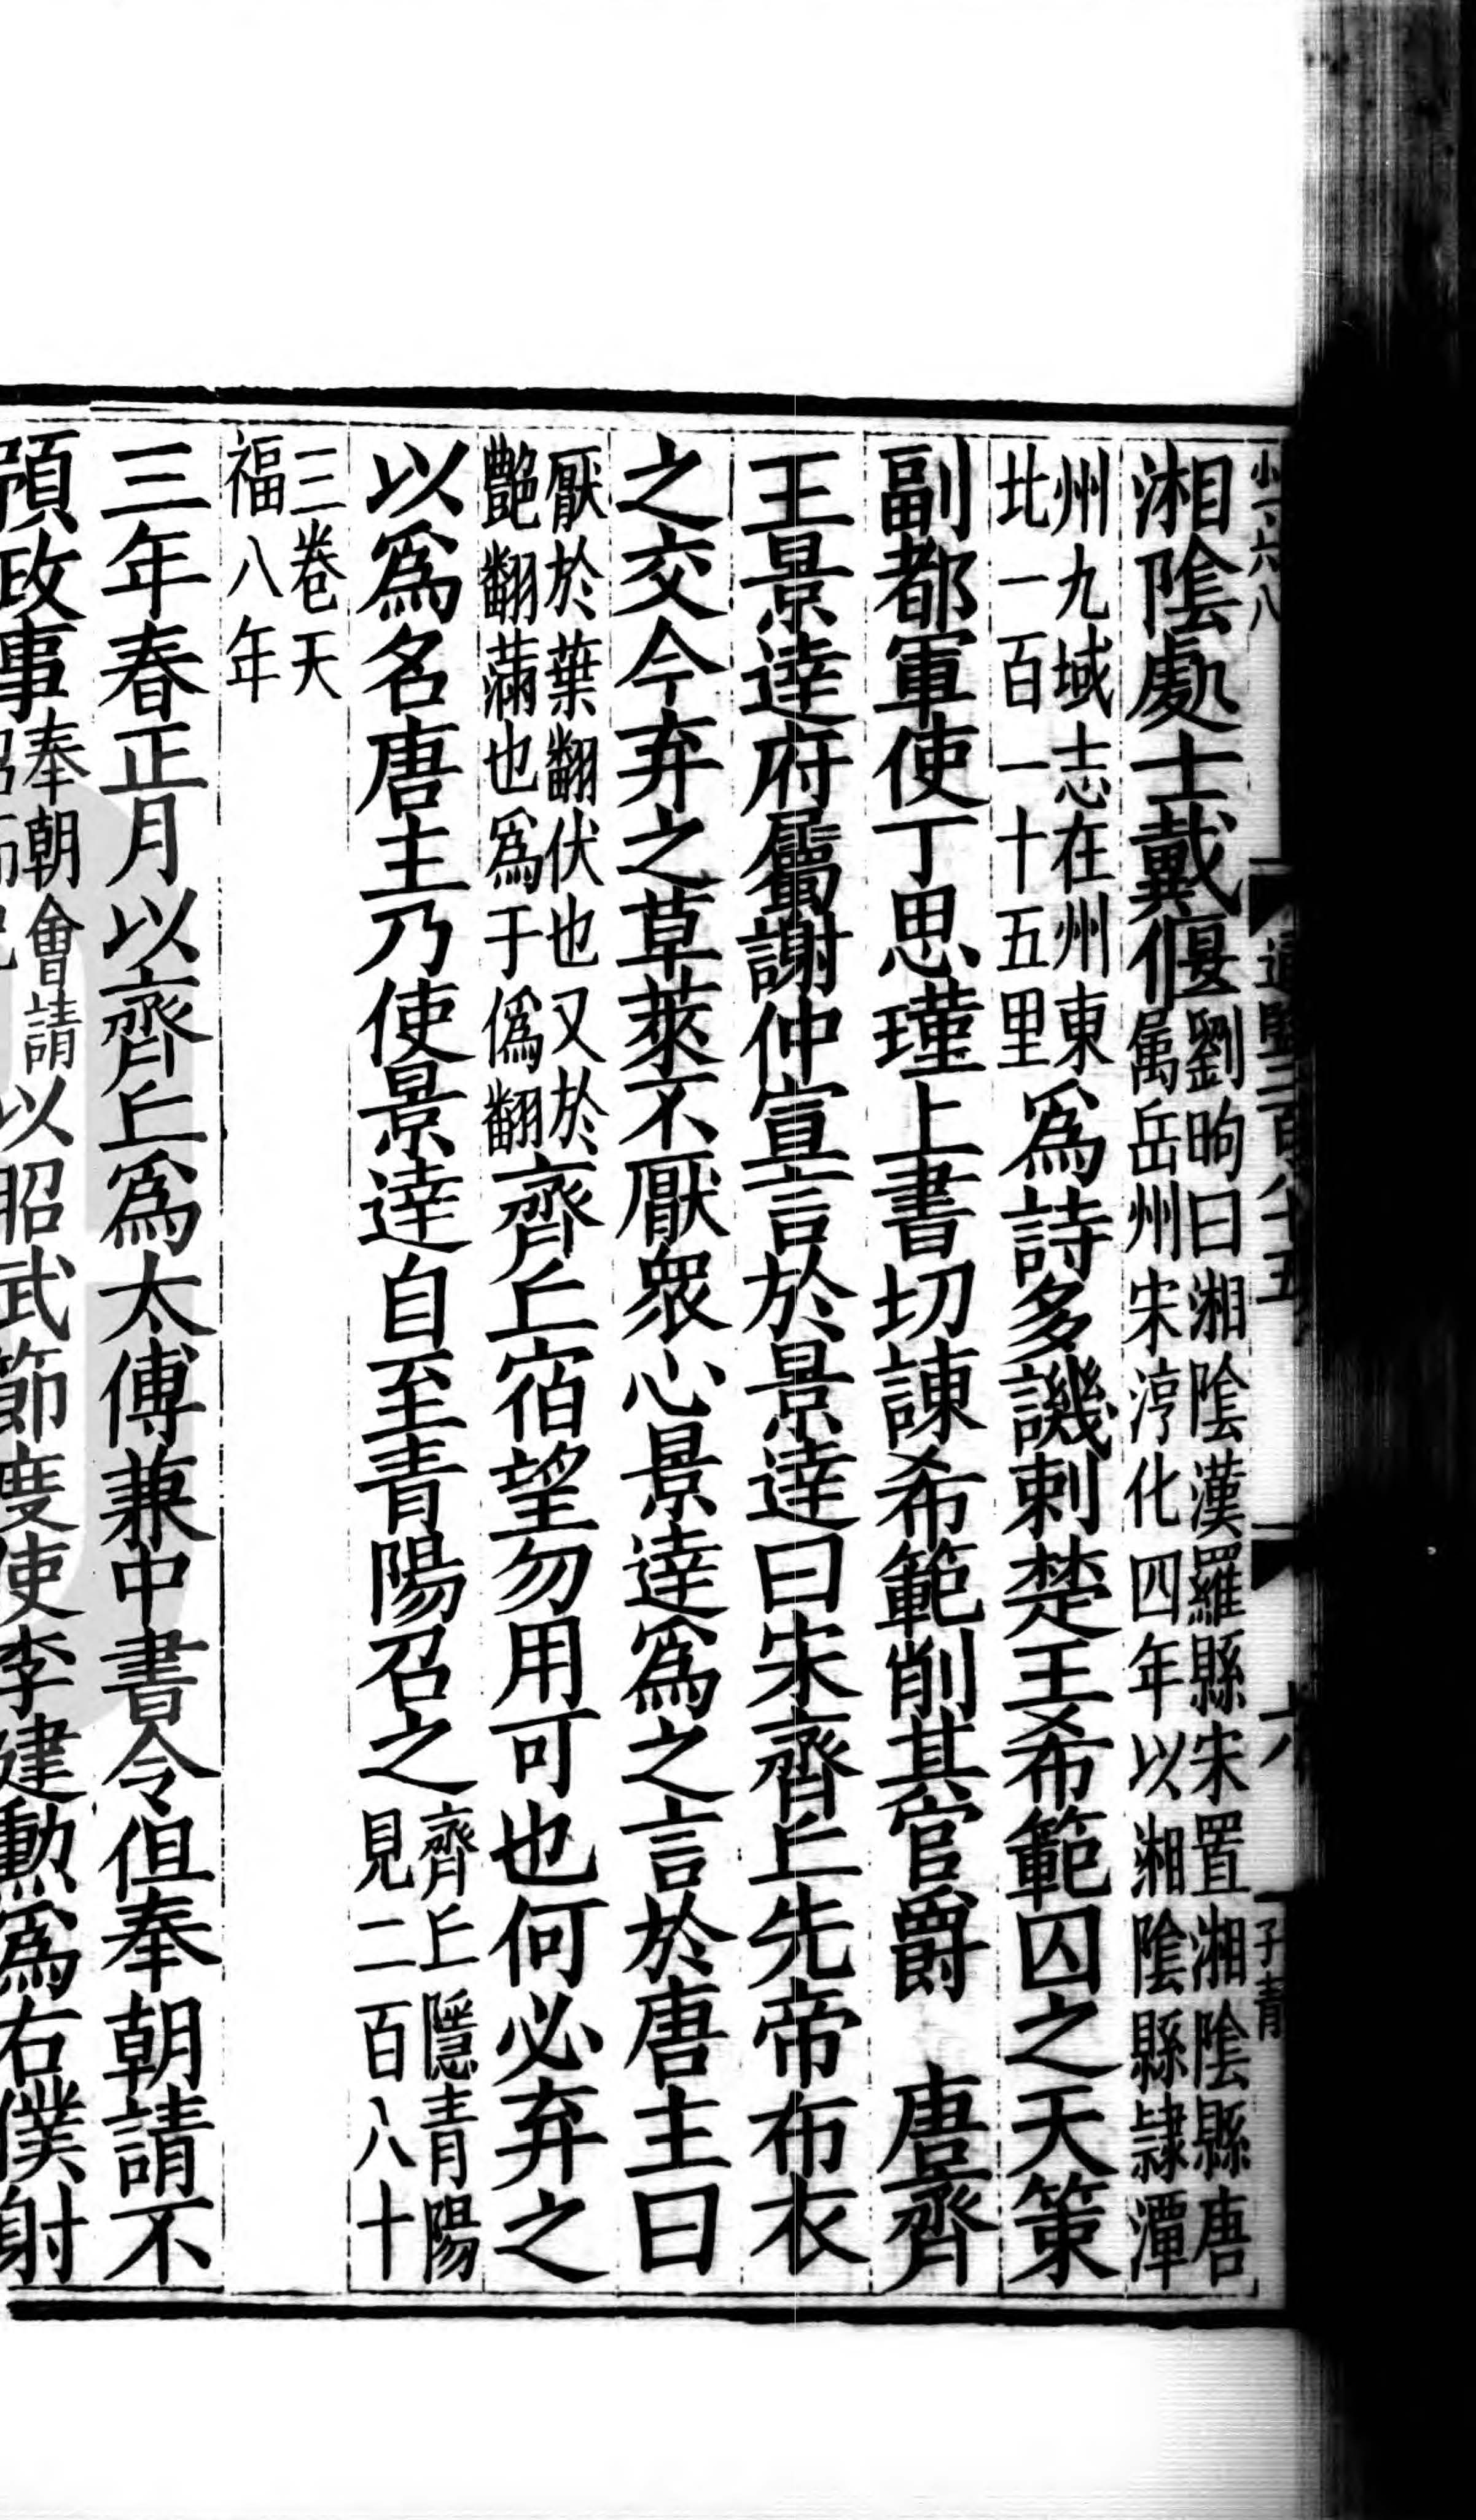 湘陰處士戴偃劉昫曰湘陰漢羅縣宋置湘陰縣唐屬岳州宋淳化四年以湘陰縣隷潭
州九域志在州東北一百一十五里爲詩多譏刺楚王希範囚之天策
副都軍使丁思瑾上書切諫希範削其官爵　唐齊
王景逹府屬謝仲宣言於景逹曰宋齊丘先帝布衣
之交今弃之草萊不厭衆心景逹爲之言於唐主曰
厭於葉翻伏也又於豔翻滿也爲于僞翻齊丘宿望勿用可也何必弃之
以爲名唐主乃使景逹自至青陽召之齊丘隱青陽見二百八十
三卷天福八年
三年春正月以齊丘爲太傅兼中書令但奉朝請不
預政事奉朝會請以昭武節度使李建勳爲右僕射